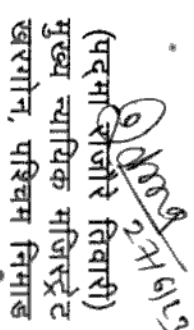 (पदमा राजोरे तिवारी)
मुख्य न्यायिक मजिस्ट्रेट
खरगोन, पश्चिम निमाड